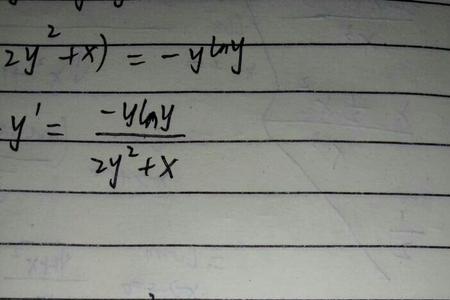 2y²+x) = -ylny
y' = -ylny / 2y²+x